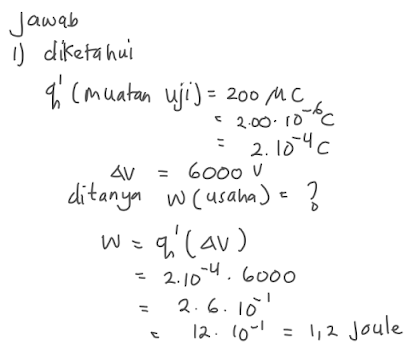 Jawab
1) diketahui
q' (muatan uji) = 200 μC
= 2.00. 10⁻⁶ C
= 2. 10⁻⁴ C
ΔV = 6000 V
ditanya W (usaha) = ?
W = q' (ΔV)
= 2.10⁻⁴ . 6000
= 2. 6. 10⁻¹
= 12. 10⁻¹ = 1,2 Joule